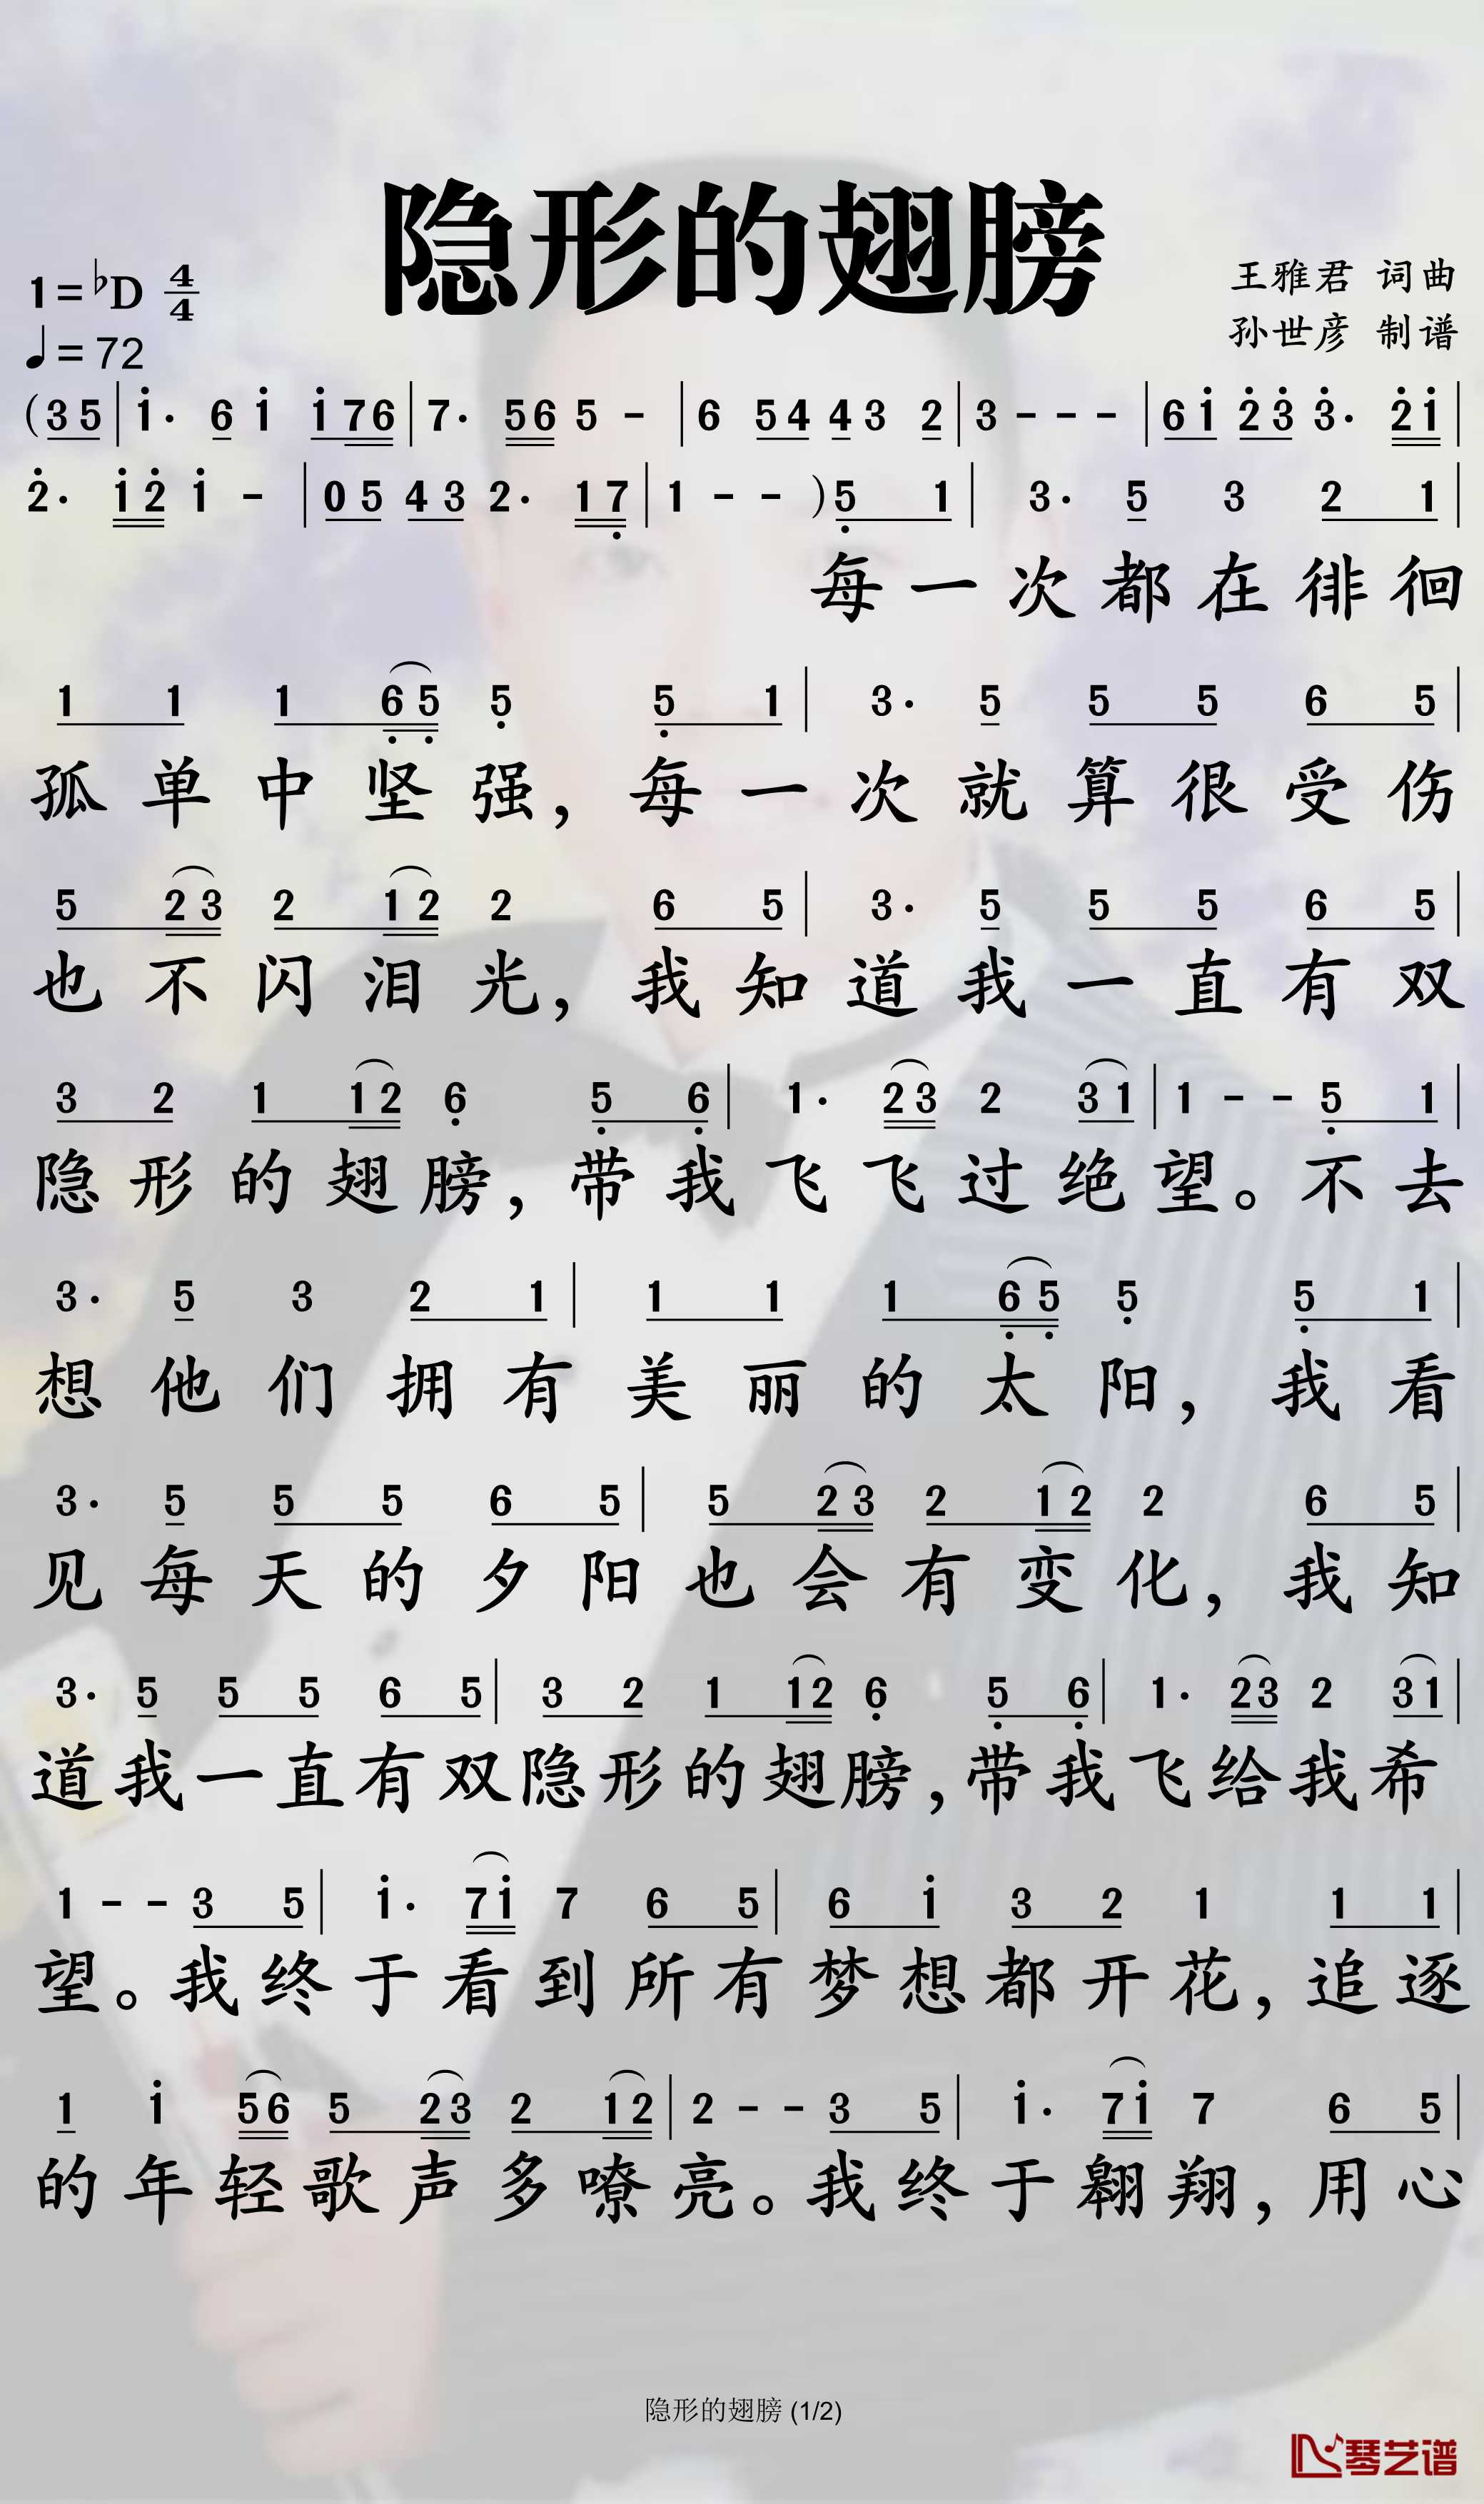 隐形的翅膀
1=♭D 4/4
王雅君 词曲
♩=72
孙世彦 制谱
(3 5 | i· 6 i i 7 6 | 7· 5 6 5 - | 6 5 4 4 3 2 | 3 - - - | 6 i 2̇ 3̇ 3̇· 2̇ i |
2̇· i 2̇ i - | 0 5 4 3 2· 1 7̣ | 1 - - ) 5̣ 1 | 3· 5 3 2 1 |
每一次都在徘徊
1 1 1 6̣ 5̣ 5̣ 5̣ 1 | 3· 5 5 5 6 5 |
孤单中坚强，每一次就算很受伤
5 2 3 2 1 2 2 6 5 | 3· 5 5 5 6 5 |
也不闪泪光，我知道我一直有双
3 2 1 1 2 6̣ 5̣ 6̣ | 1· 2 3 2 3 1 | 1 - - 5̣ 1 |
隐形的翅膀，带我飞飞过绝望。不去
3· 5 3 2 1 | 1 1 1 6̣ 5̣ 5̣ 5̣ 1 |
想他们拥有美丽的太阳，我看
3· 5 5 5 6 5 | 5 2 3 2 1 2 2 6 5 |
见每天的夕阳也会有变化，我知
3· 5 5 5 6 5 | 3 2 1 1 2 6̣ 5̣ 6̣ | 1· 2 3 2 3 1 |
道我一直有双隐形的翅膀，带我飞给我希
1 - - 3 5 | i· 7 i 7 6 5 | 6 i 3 2 1 1 1 |
望。我终于看到所有梦想都开花，追逐
1 i 5 6 5 2 3 2 1 2 | 2 - - 3 5 | i· 7 i 7 6 5 |
的年轻歌声多嘹亮。我终于翱翔，用心
隐形的翅膀 (1/2)
琴艺谱